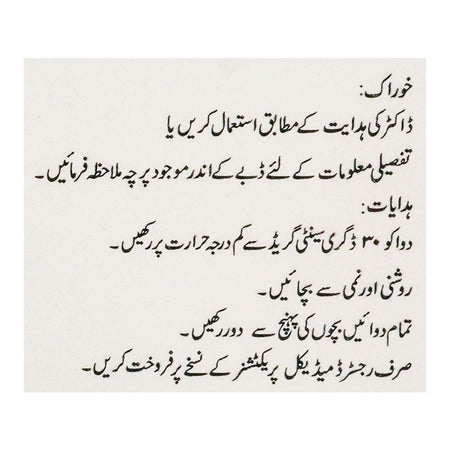 خوراک:
ڈاکٹر کی ہدایت کے مطابق استعمال کریں یا
تفصیلی معلومات کے لئے ڈبے کے اندر موجود پرچہ ملاحظہ فرمائیں۔
ہدایات:
دوا کو ۳۰ ڈگری سینٹی گریڈ سے کم درجہ حرارت پر رکھیں۔
روشنی اور نمی سے بچائیں۔
تمام دوائیں بچوں کی پہنچ سے دور رکھیں۔
صرف رجسٹرڈ میڈیکل پریکٹشنر کے نسخے پر فروخت کریں۔